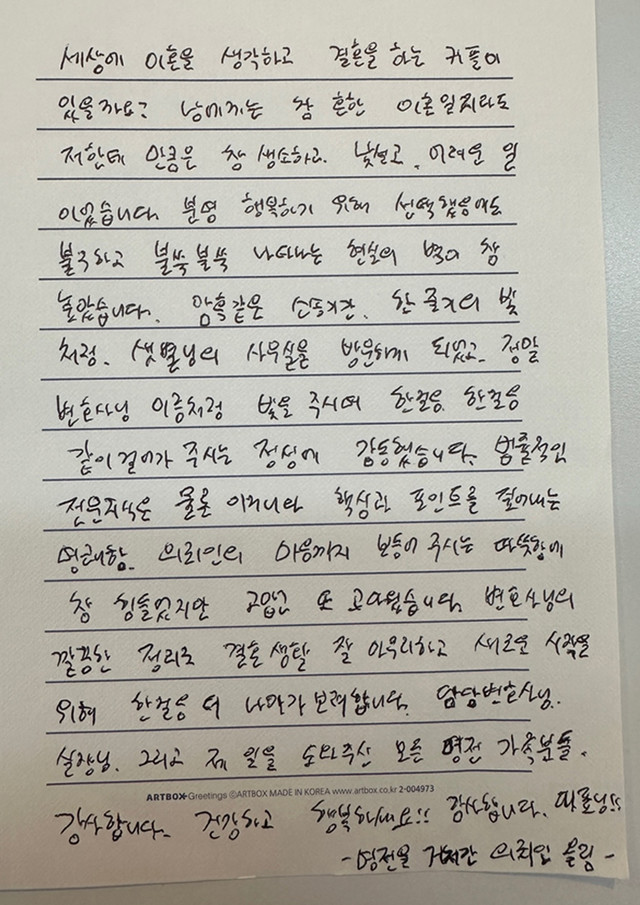 세상에 이혼을 생각하고 결혼을 하는 커플이
있을까요? 남에게는 참 흔한 이혼일지라도
저한테 만큼은 참 생소하고, 낯설고, 어려운 일
이었습니다. 분명 행복하기 위해 선택했음에도
불구하고 불쑥불쑥 나타나는 현실의 벽이 참
높았습니다. 암흑같은 소송기간, 한 줄기의 빛
처럼, 샛별님의 사무실을 방문하게 되었고, 정말
변호사님 이름처럼 빛을 주시며 한걸음, 한걸음
같이 걸어가 주시는 정성에 감동했습니다. 법률적인
전문지식은 물론 이거니와 핵심과 포인트를 짚어내는
명쾌함, 의뢰인의 마음까지 보듬어 주시는 따뜻함에
참 힘들었지만 고맙고 또 고마웠습니다. 변호사님의
깔끔한 정리로 결혼 생활 잘 마무리하고 새로운 시작을
위해 한걸음 더 나아가보려합니다. 담당변호사님,
실장님, 그리고 제 일을 도와주신 모든 명전 가족분들,
ARTBOX Greetings ⓒARTBOX MADE IN KOREA www.artbox.co.kr 2-004973
감사합니다. 건강하고 행복하세요!! 감사합니다. 대표님!!
-명전을 거쳐간 의뢰인 올림-